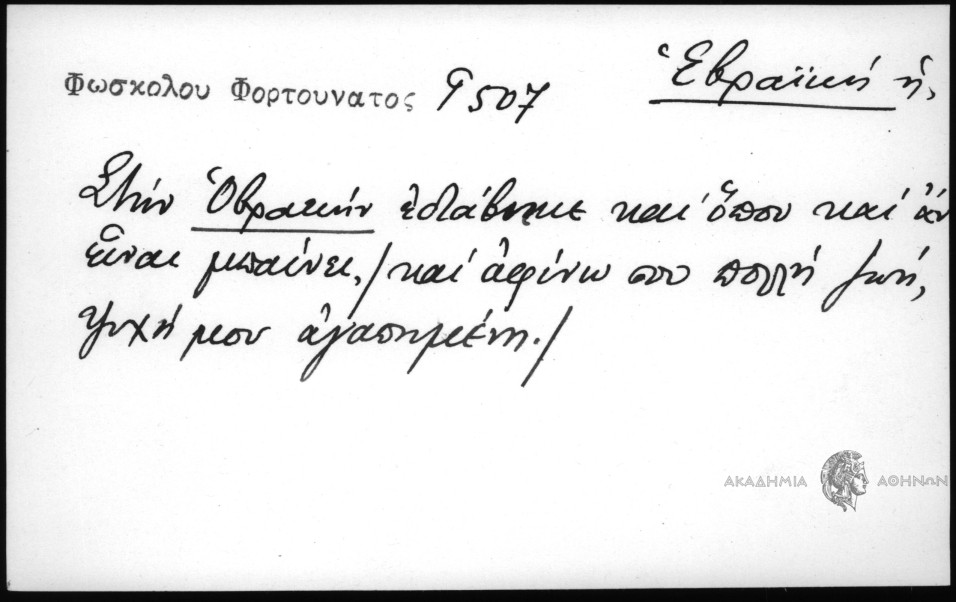 Φωσκολου Φορτουνατος Γ 507 Ἑβραϊκή ἡ,
Στήν Ὀβραικήν ἐδιάβηκε καί ὅπου καί ἄν
εἶναι μπαίνει,/ καί ἀφίνω σου πολλή ζωή,
ψυχή μου ἀγαπημένη./
ΑΚΑΔΗΜΙΑ ΑΘΗΝΩΝ